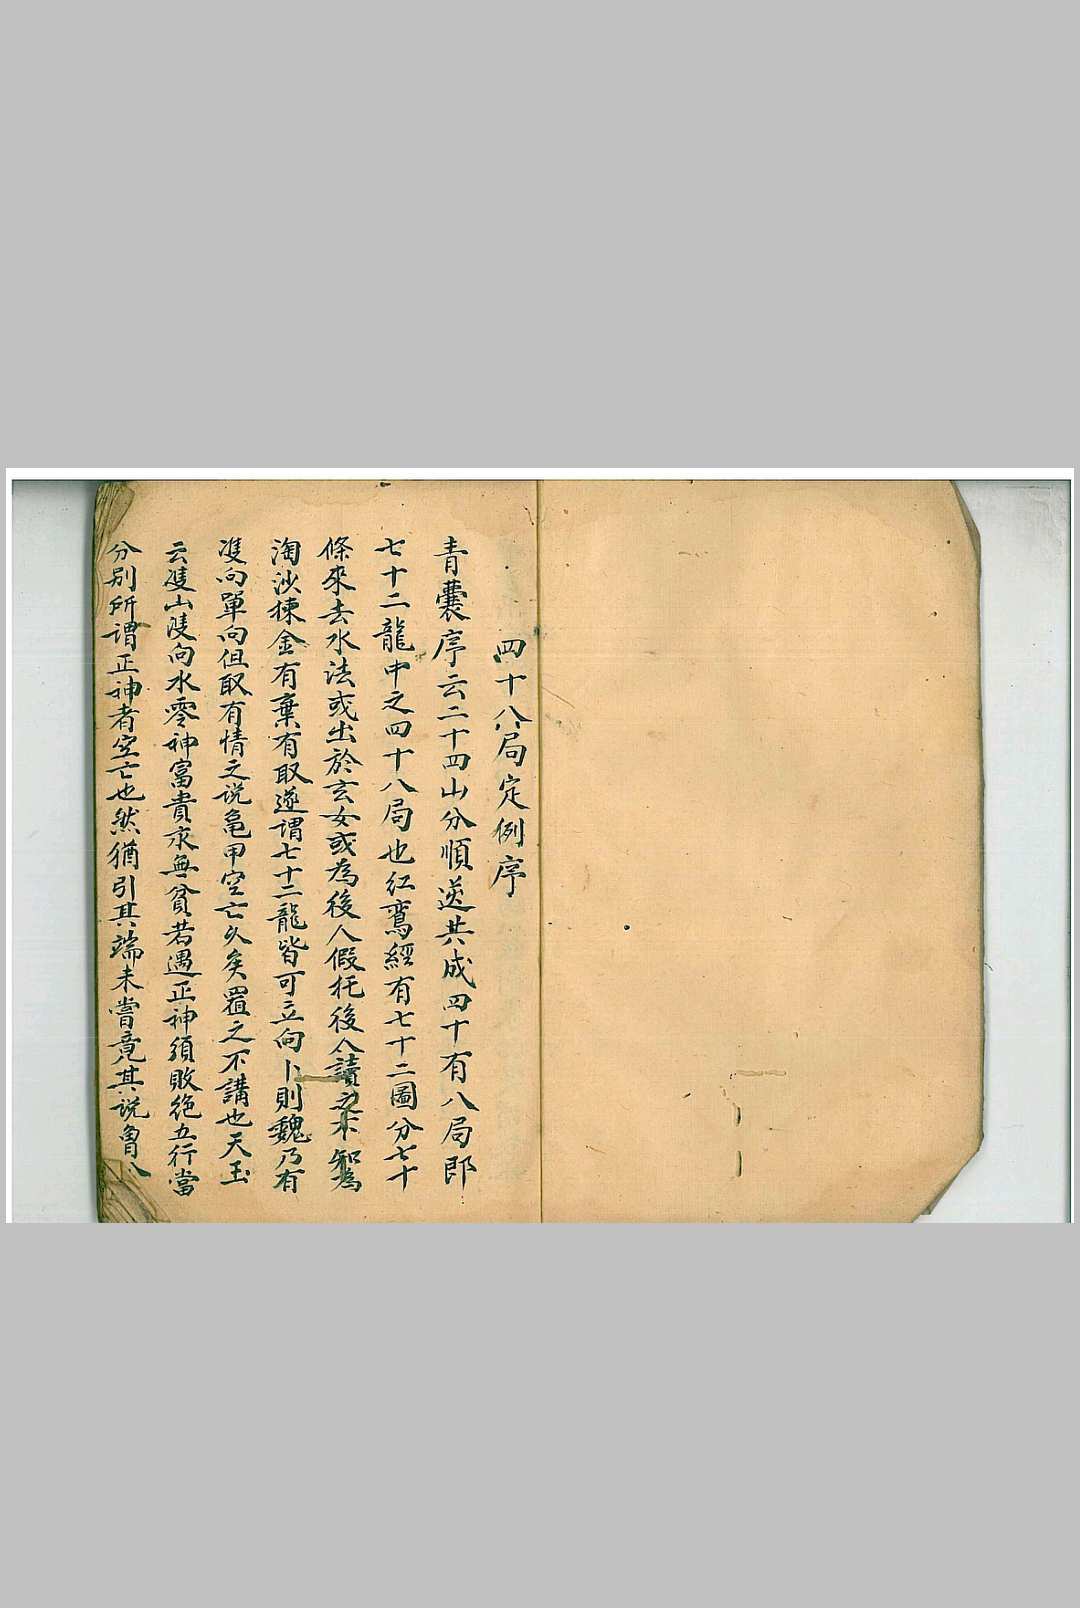 四十八局定例序
青囊序云二十四山分順逆共成四十有八局即
七十二龍中之四十八局也紅鸞經有七十二圖分七十
條來去水法或出於玄女或為後人假托後人讀之不智為
淘沙揀金有棄有取遂謂七十二龍皆可立向卜則魏乃有
双向單向但取有情之说亀甲空亡久矣置之不講也天玉
云双山双向水零神富貴永無貧若遇正神須敗绝五行當
分别所谓正神者空亡也然猶引其端未嘗竟其说曾八